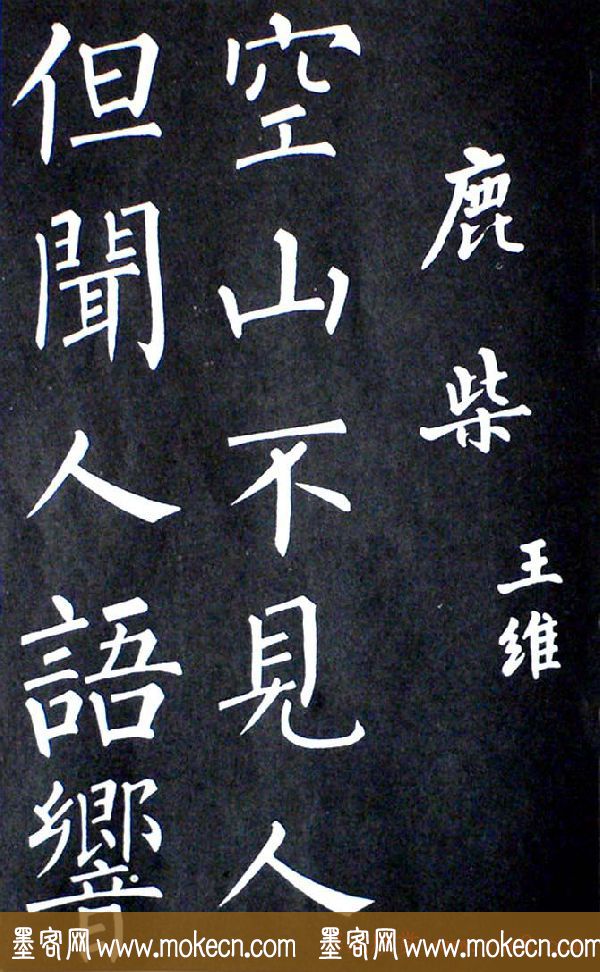 鹿柴
王维
空山不見人
但聞人語響
墨客网 www.mokecn.com 墨客网 www.mokecn.com